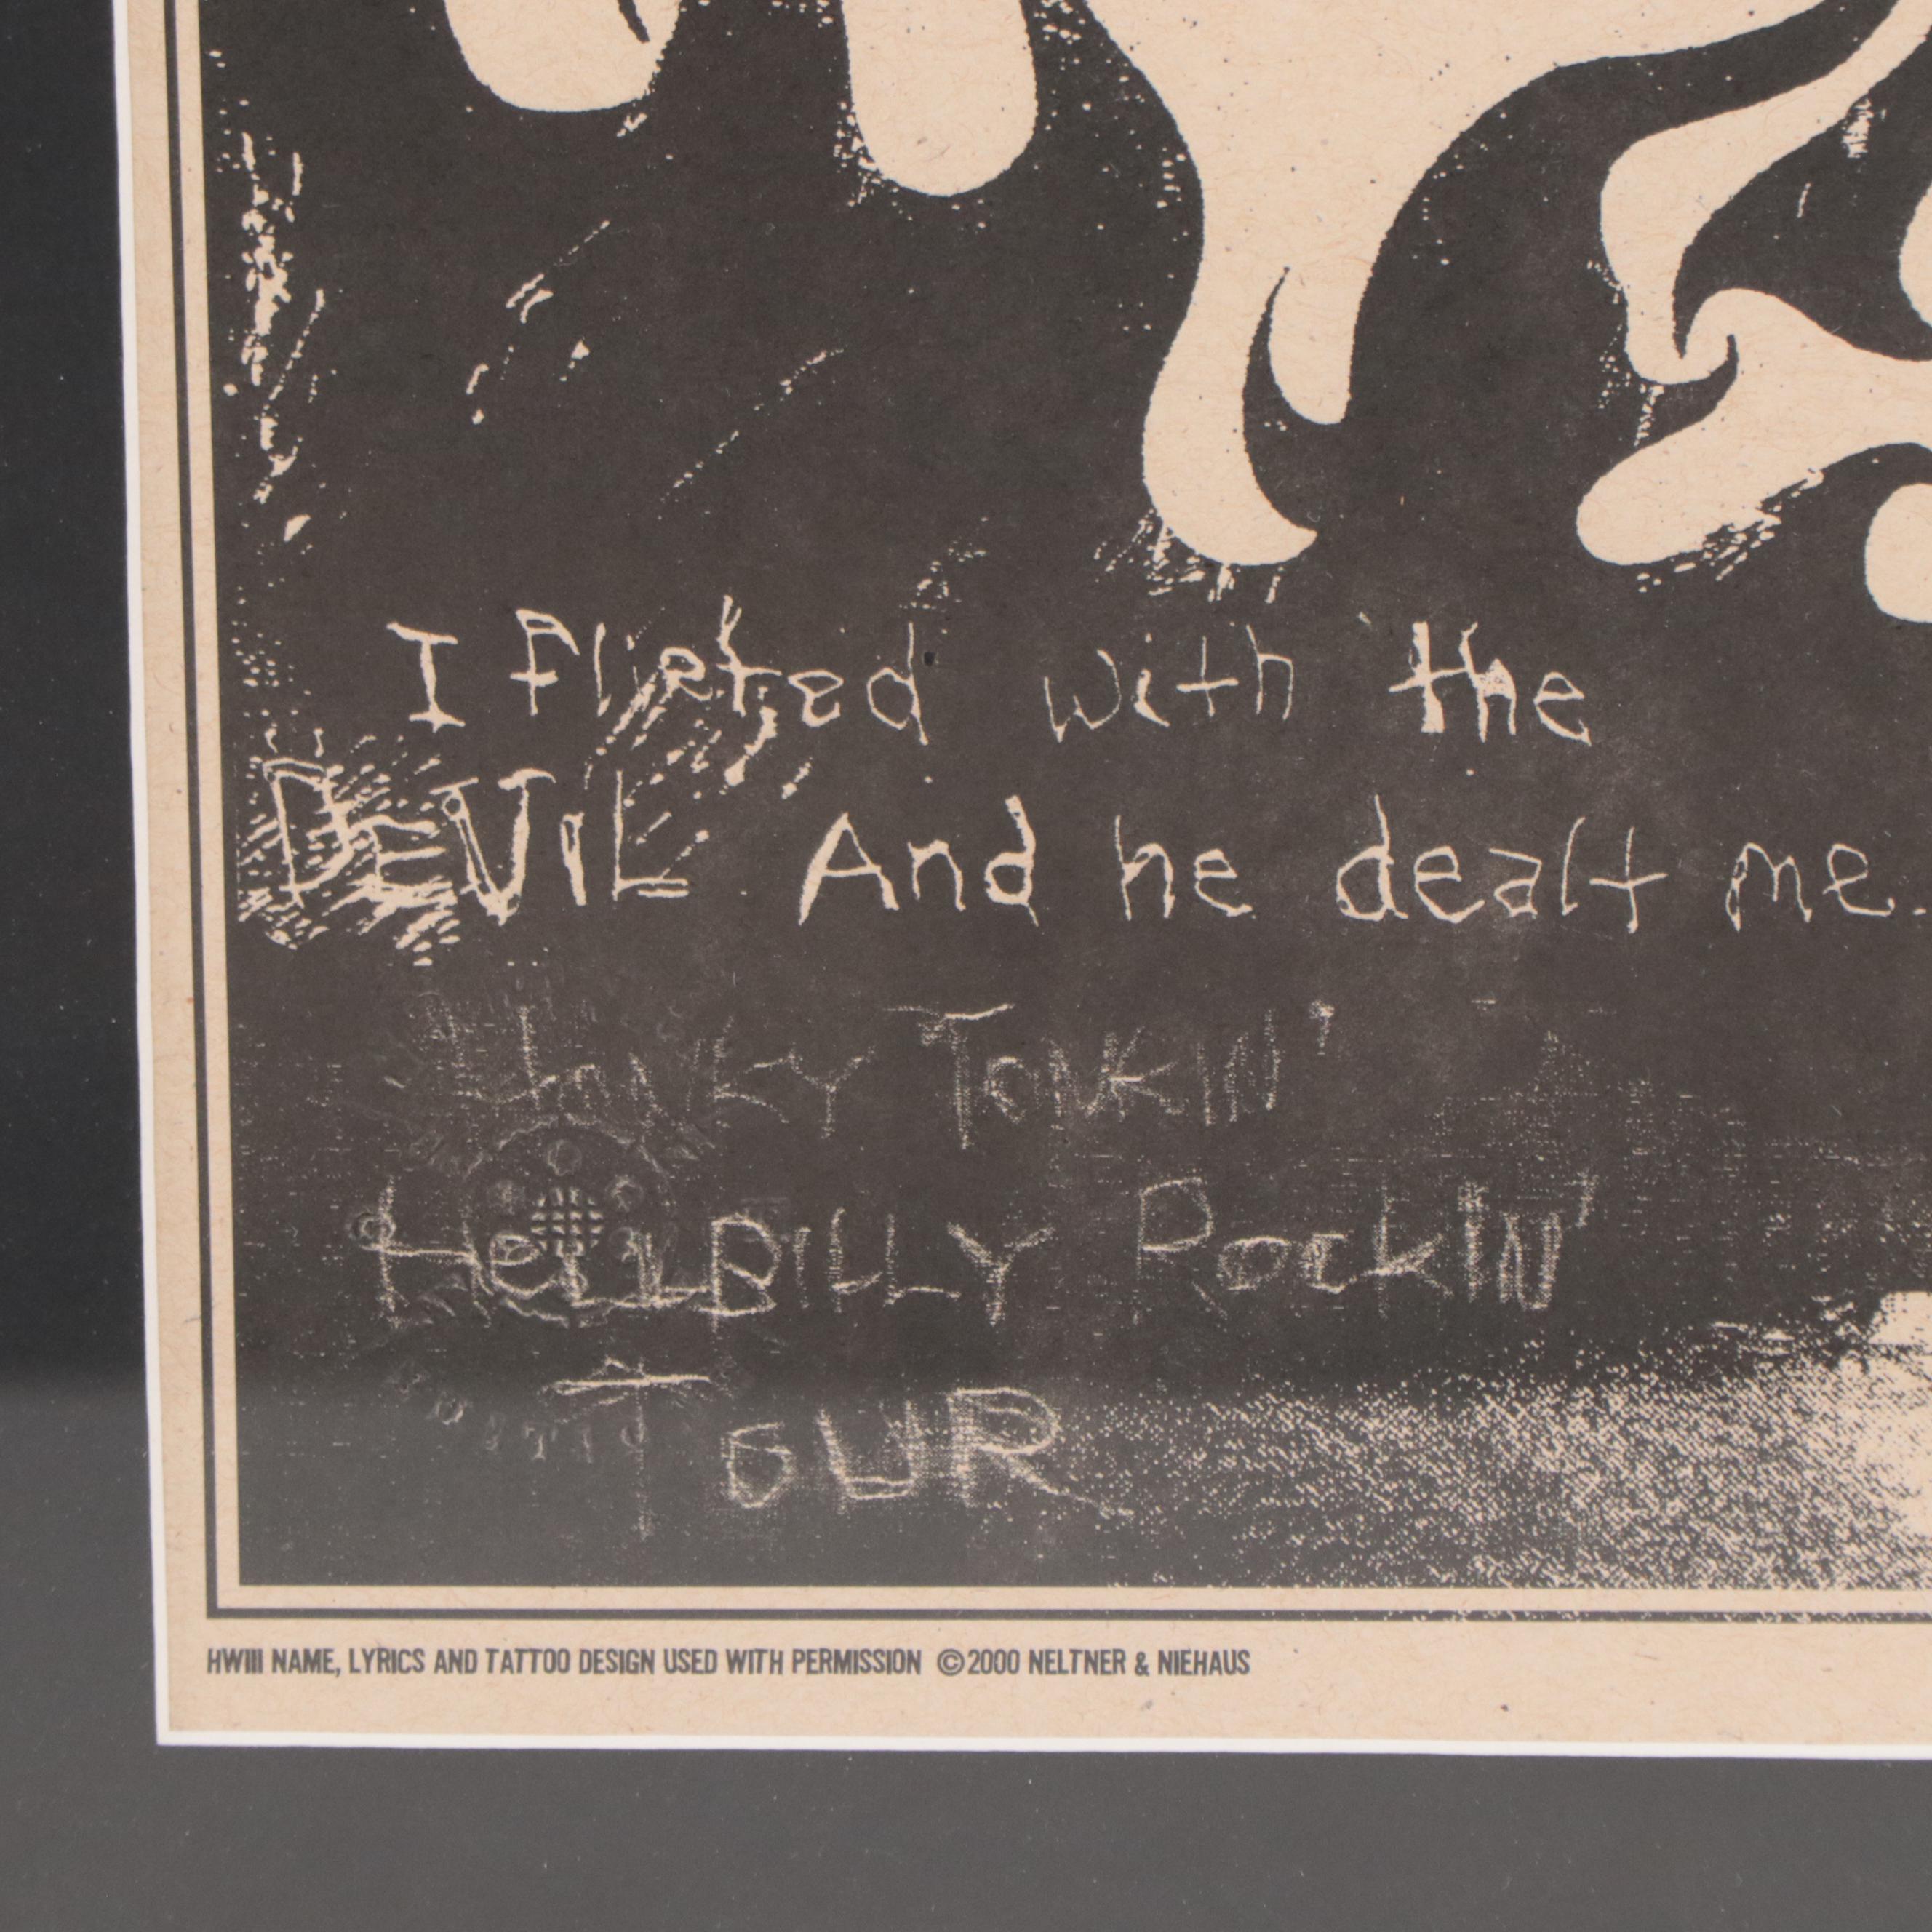 I flirted with the
DEVIL And he dealt me.
HONKY TONKIN'
HELLBILLY ROCKIN'
TOUR
HWIII NAME, LYRICS AND TATTOO DESIGN USED WITH PERMISSION ©2000 NELTNER & NIEHAUS